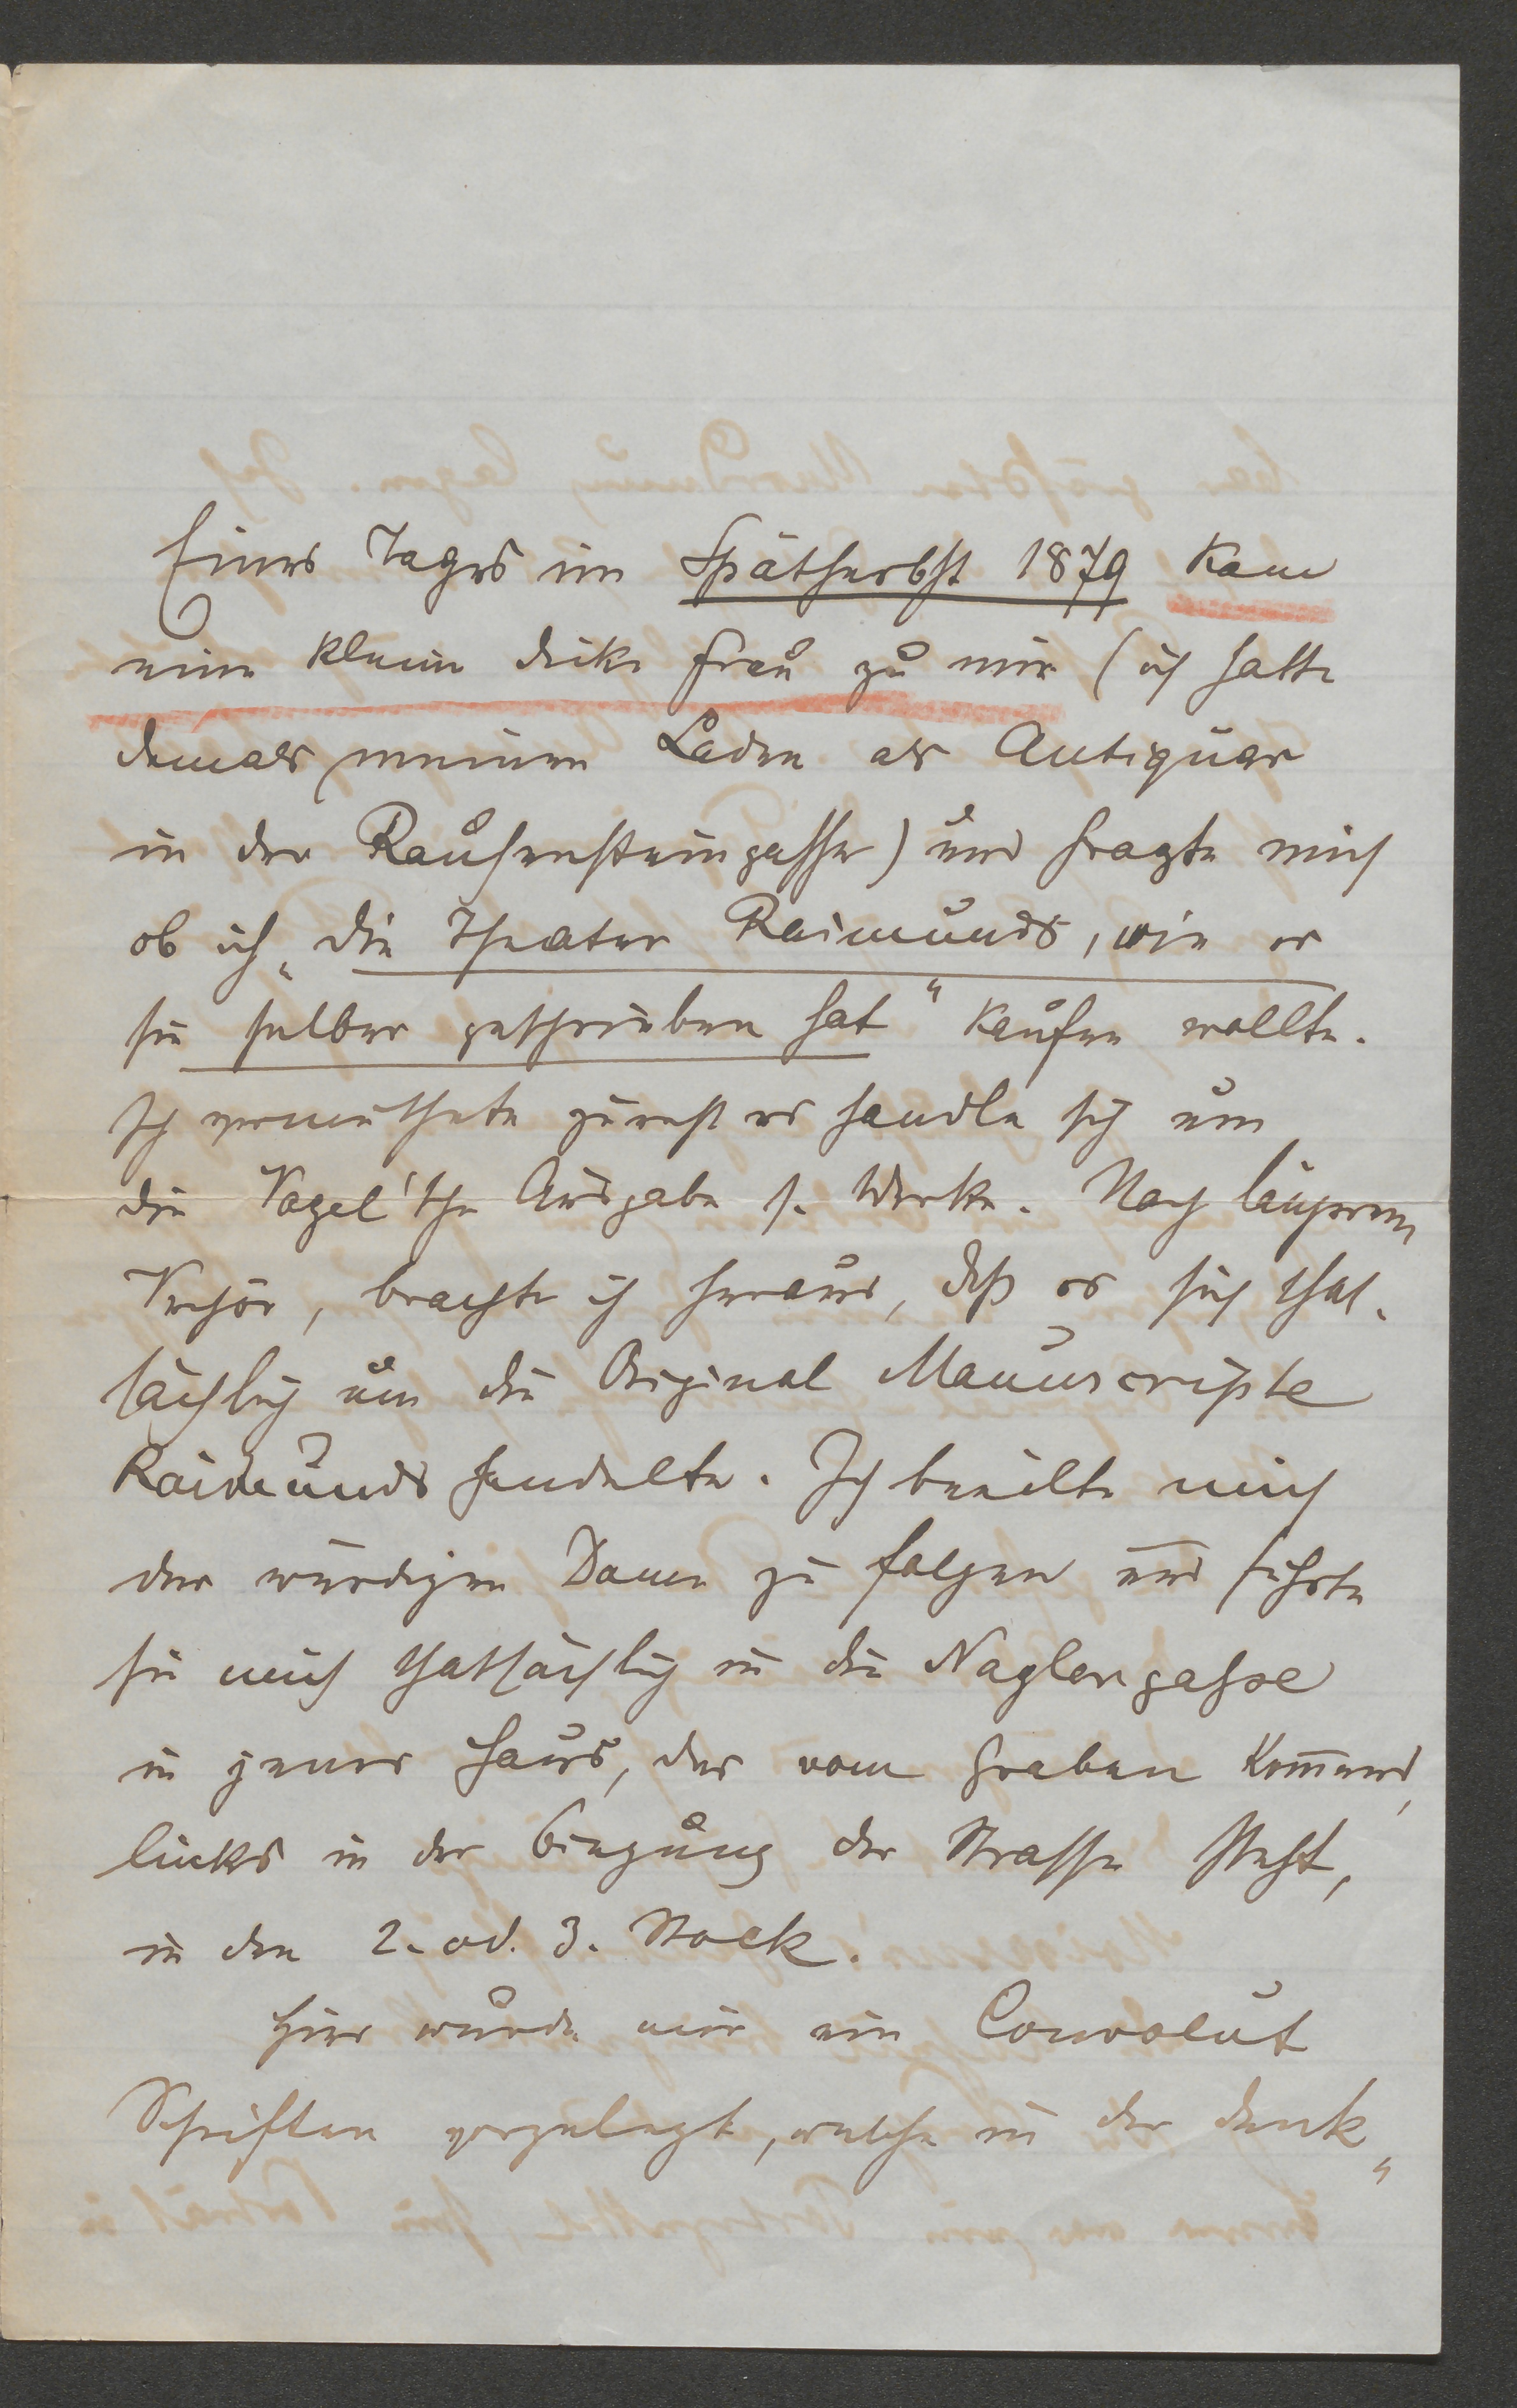 Eines Tages im Spätherbst 1879 kam
eine kleine dicke Frau zu mir (ich hatte
damals meinen Laden als Antiquar
in der Rauhensteingasse) und fragte mich
ob ich „die Theater Raimunds, wie er
sie selber geschrieben hat“ kaufen wollte.
Ich vermuthete zuerst es handle sich um
die Vogel'sche Ausgabe s. Werke. Nach längerem
Verhör, brachte ich heraus, daß es sich that-
sächlich um die Original Manuscripte
Raimunds handelte. Ich beeilte mich
der würdigen Dame zu folgen und führte
sie mich thatsächlich in die Naglergasse
in jenes Haus, das vom Graben kom̄end,
links in der Biegung der Strasse steht,
in den 2. od. 3. Stock.
Hier wurde mir ein Convolut
Schriften vorgelegt, welche in der denk„